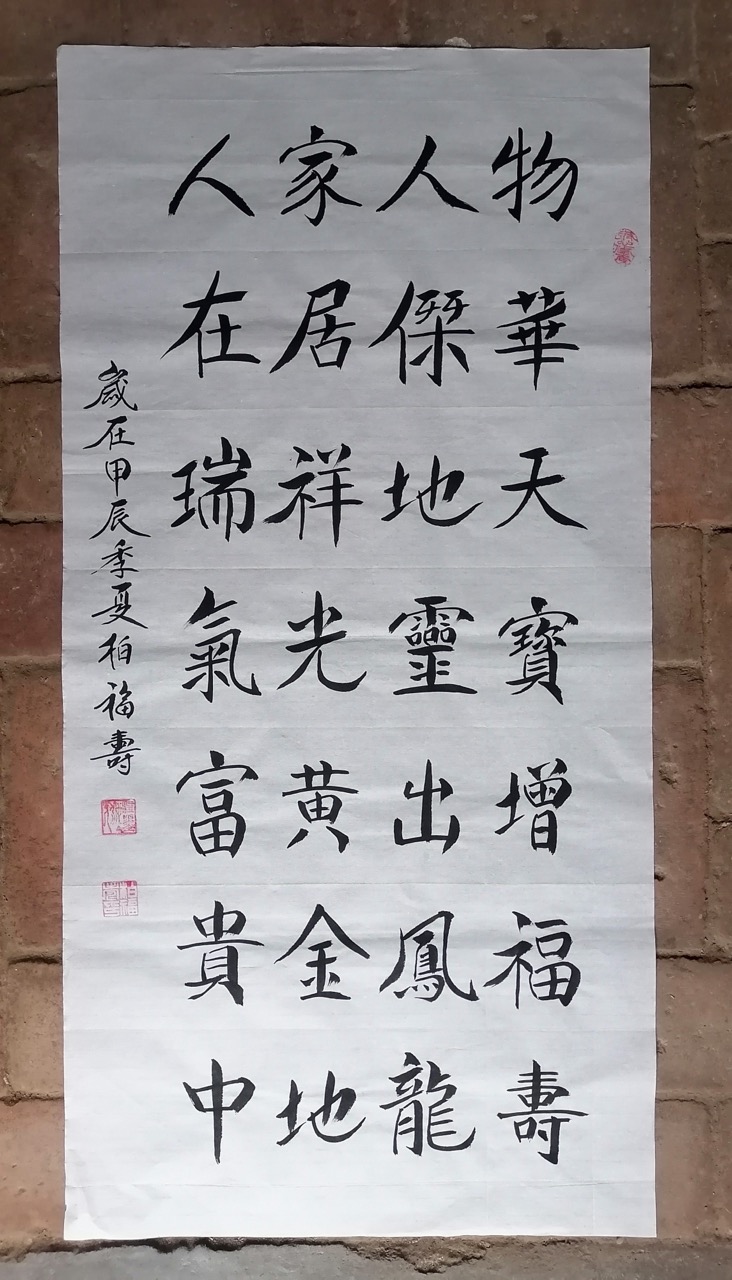 物華天寶增福壽
人傑地靈出鳳龍
家居祥光黄金地
人在瑞氣富貴中
歲在甲辰季夏柏福壽